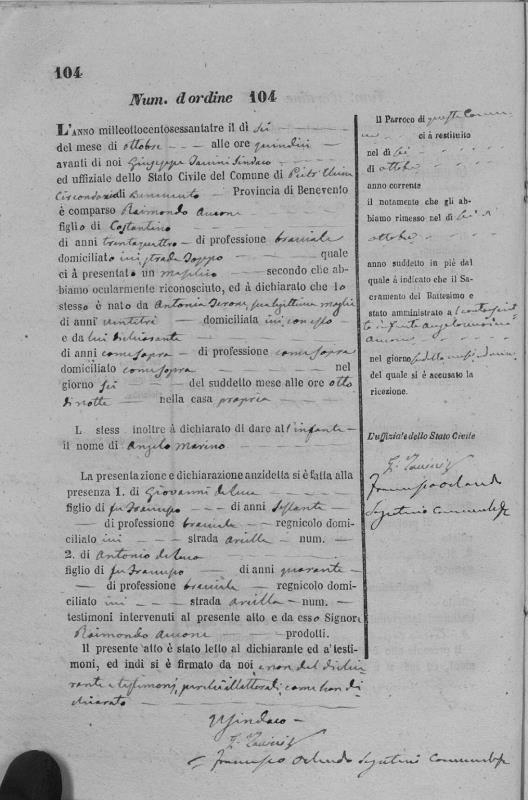 104
Num. d'ordine 104
L'ANNO milleottocentosessantatre il dì sei
del mese di ottobre alle ore quindici
avanti di noi Giuseppe Sindaco
ed uffiziale dello Stato Civile del Comune di
Circondario di Benevento Provincia di Benevento
è comparso Raimondo
figlio di Costantino
di anni trentaquattro di professione bracciale
domiciliato ivi strada quale
ci à presentato un maschio secondo che ab-
biamo ocularmente riconosciuto, ed à dichiarato che lo
stesso è nato da Antonia sua legittima moglie
di anni ventitre domiciliata ivi con esso
e da lui dichiarante
di anni come sopra di professione come sopra
domiciliato come sopra nel
giorno sei del suddetto mese alle ore otto
di notte nella casa propria
L stess inoltre à dichiarato di dare all'infante
il nome di Angelo Marino
La presentazione e dichiarazione anzidetta si è fatta alla
presenza 1. di Giovanni de Luca
figlio di fu di anni sessanta
di professione bracciale regnicolo domi-
ciliato ivi strada num.
2. di Antonio de Luca
figlio di fu di anni quaranta
di professione bracciale regnicolo domi-
ciliato ivi strada num.
testimoni intervenuti al presente atto e da esso Signore
Raimondo prodotti.
Il presente atto è stato letto al dichiarante ed a' testi-
moni, ed indi si è firmato da noi e non dal dichia-
rante e testimoni, perché illetterati, come han di-
chiarato
Il Sindaco
Francesco Orlando Segretario Comunale
Il Parroco di questo Comu-
ne ci à restituito
nel dì sei
di ottobre
anno corrente
il notamente che gli ab-
biamo rimesso nel dì sei
ottobre
anno suddetto in piè dal
quale à indicato che il Sa-
cramento del Battesimo è
stato amministrato a
infante Angelo Marino
nel giorno
del quale si è accusato la
ricezione.
L'uffiziale dello Stato Civile
Francesco Orlando
Segretario Comunale